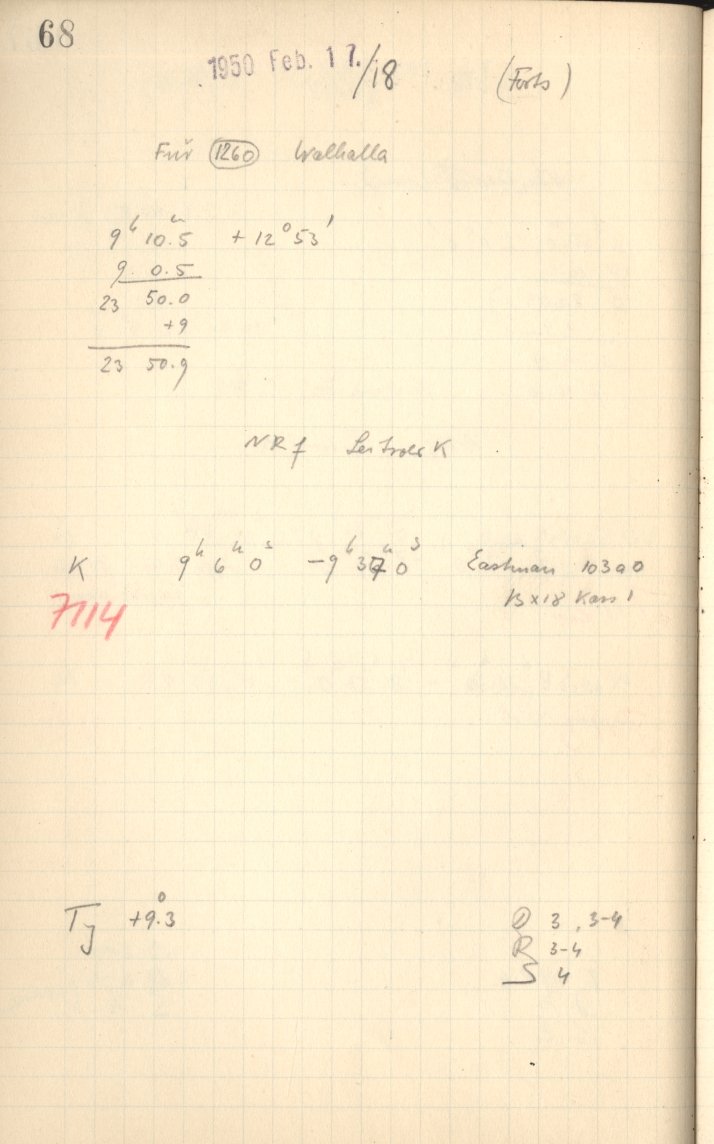 68
1950 Feb. 17./18 (Forts)
Für 1260 Walhalla
9ʰ 10.5ᵐ +12° 53'
9 0.5
23 50.0
+9
23 50.9
NRf Leitrohr K
K 9ʰ 6ᵐ 0ˢ – 9ʰ 37ᵐ 0ˢ Eastman 103a0
13x18 Kass 1
7114
+9.3°
3, 3-4
R 3-4
S 4